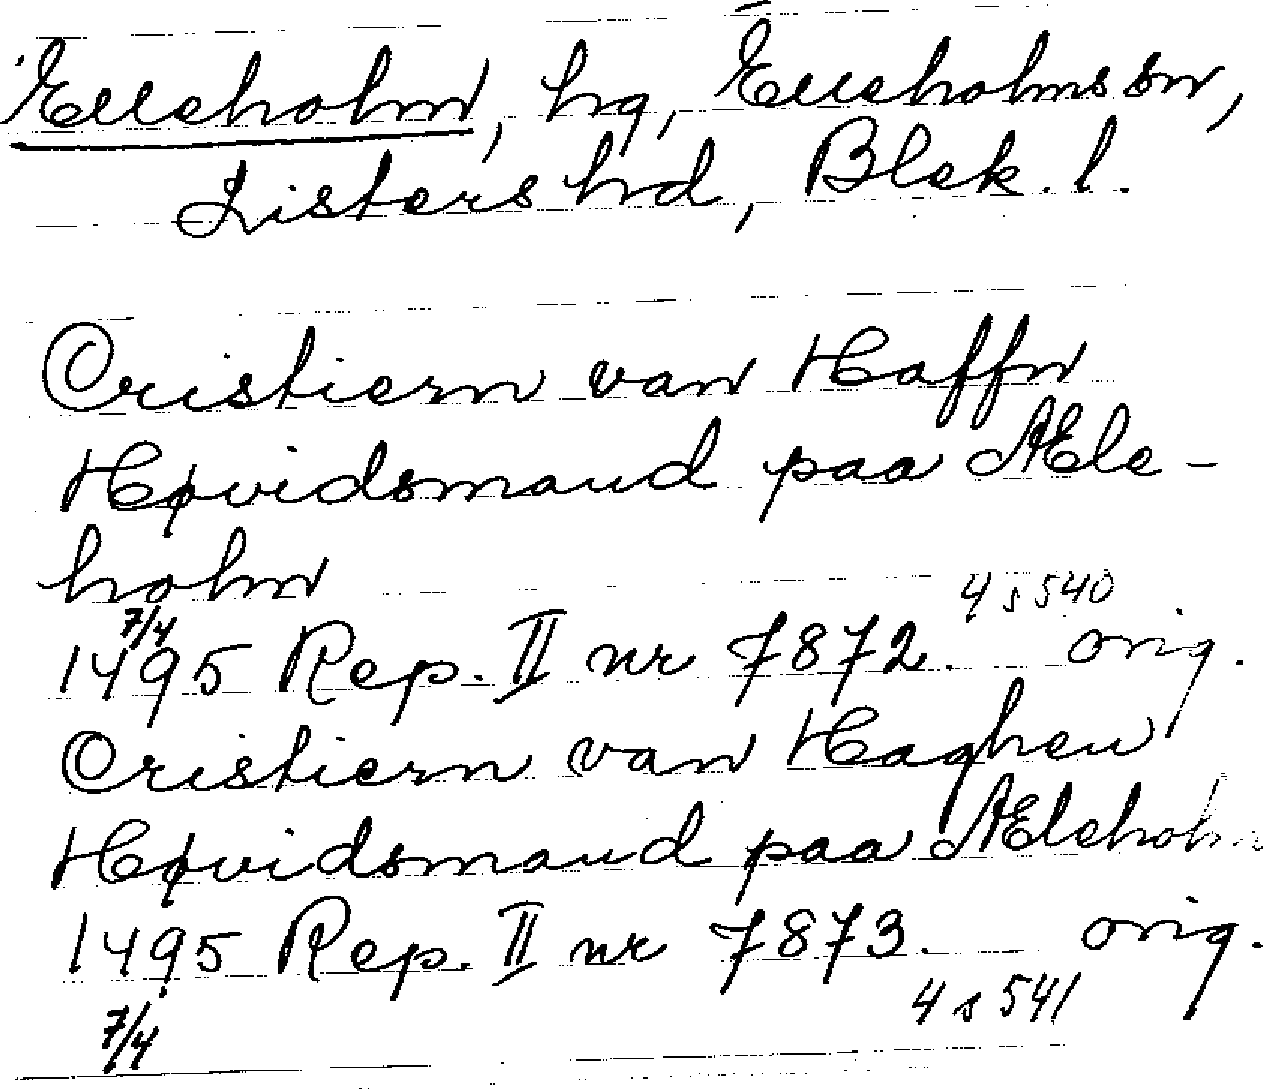 Elleholm, hg, Elleholms sn,
Listers hd, Blek. l.
Cristiern van Haffn
Høvidsmand paa Æle-
holm
4 s 540
7/4
1495 Rep. II nr 7872. orig.
Cristiern van Haghen
Høvidsmand paa Æleholm
1495 Rep. II nr 7873. orig.
7/4 4 s 541